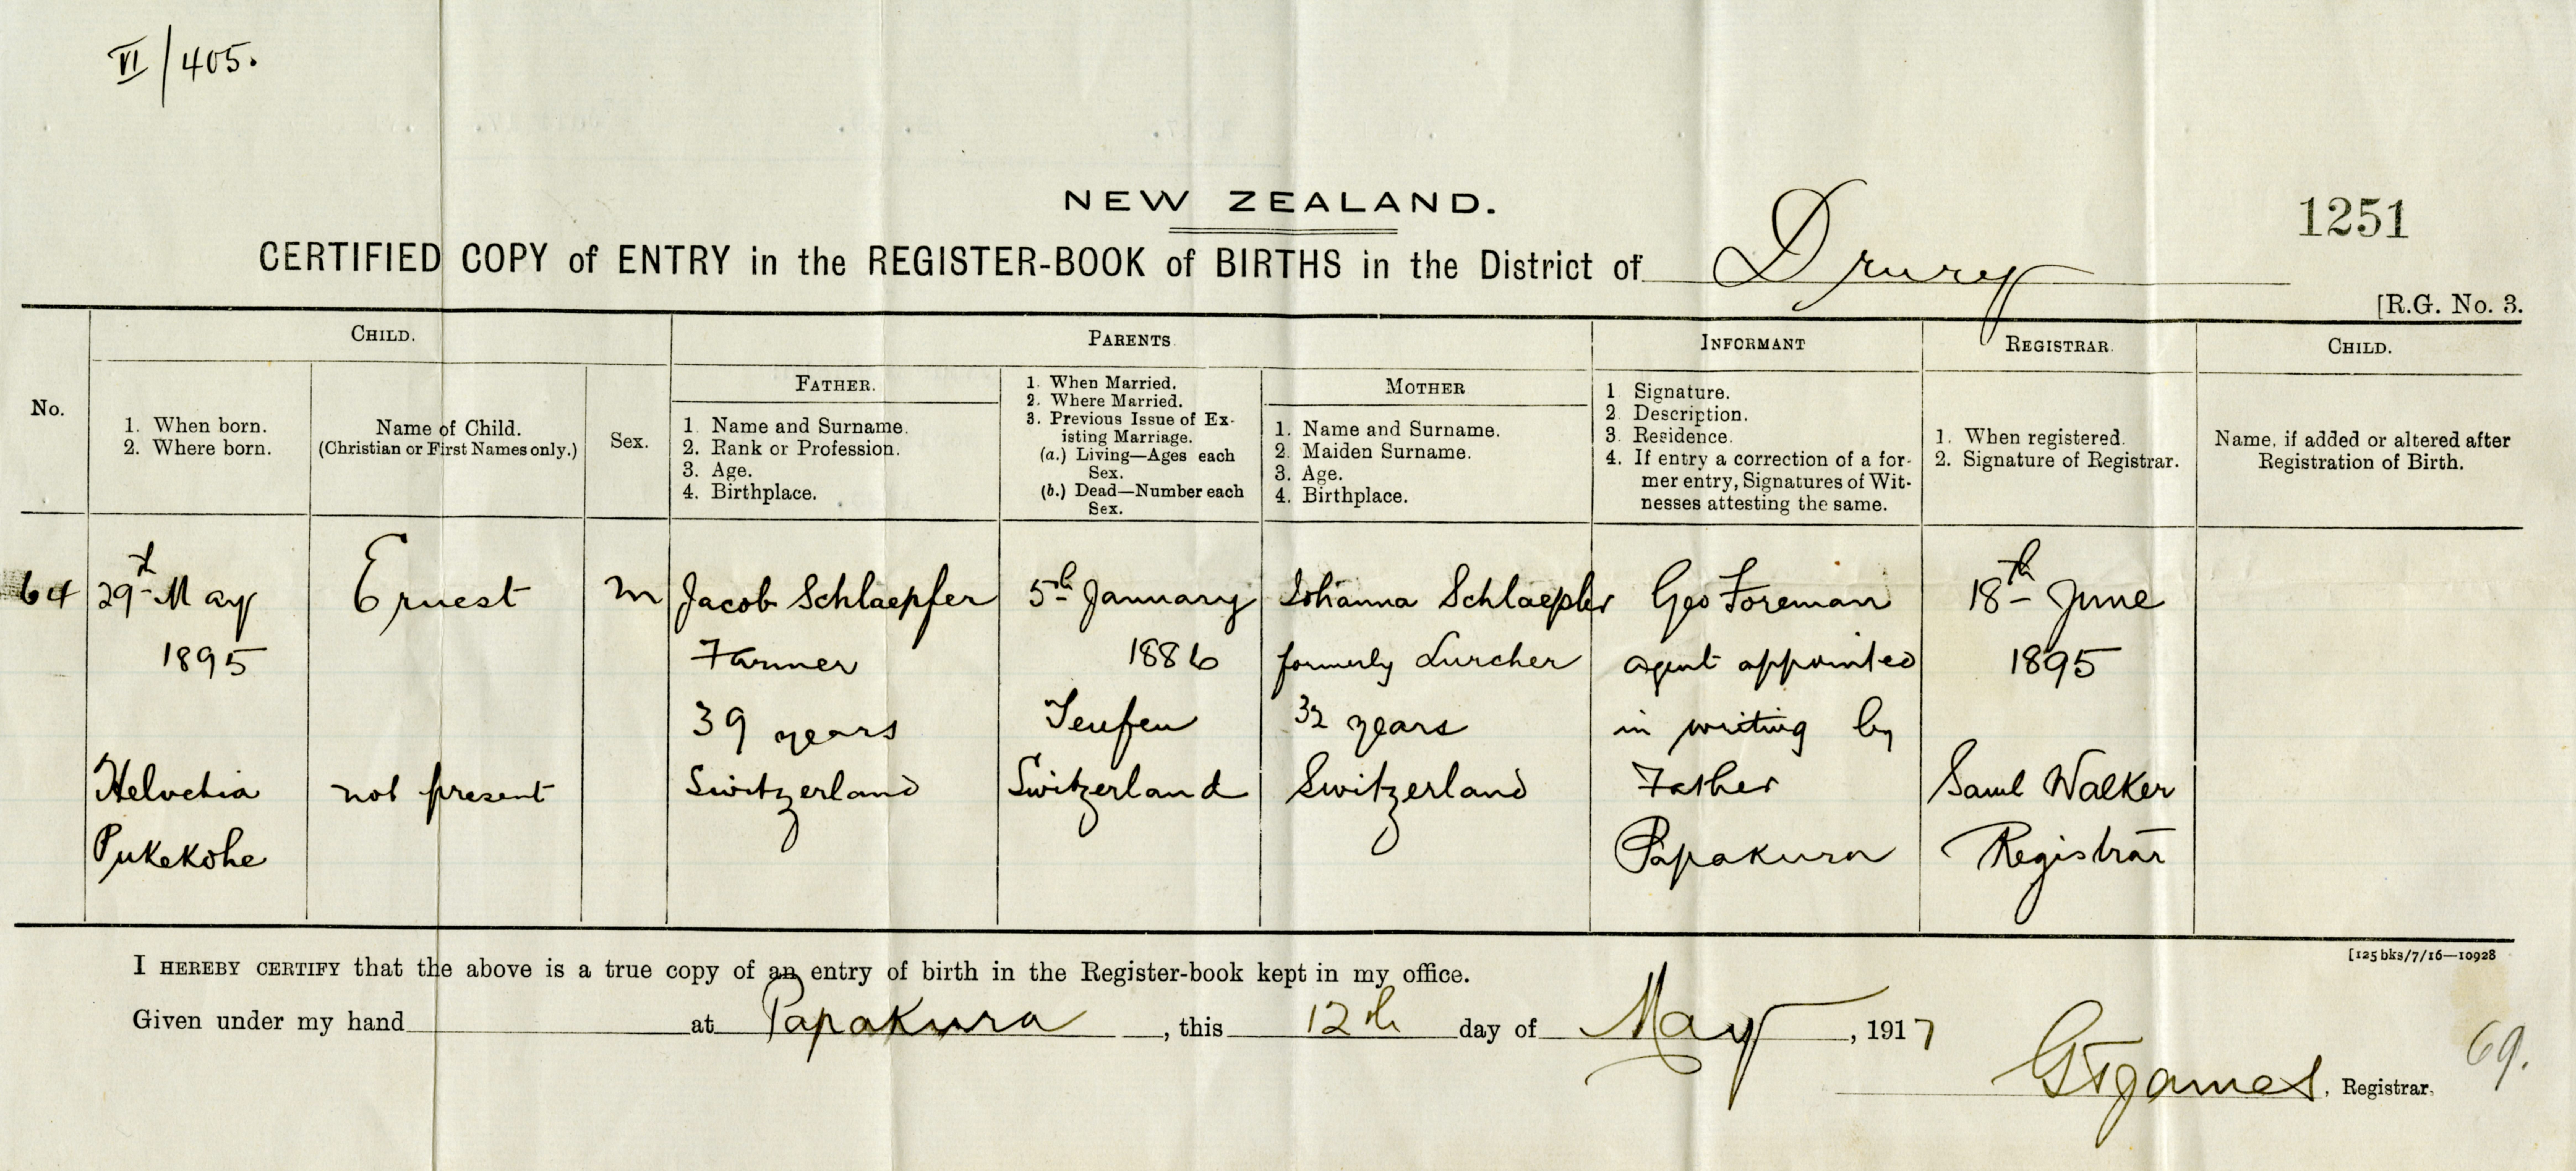 VI/405.
NEW ZEALAND.
1251
CERTIFIED COPY of ENTRY in the REGISTER-BOOK of BIRTHS in the District of Drury
[R.G. No. 3.
No.
CHILD.
1. When born.
2. Where born.
Name of Child.
(Christian or First Names only.)
Sex.
PARENTS
FATHER.
1. Name and Surname.
2. Rank or Profession.
3. Age.
4. Birthplace.
1. When Married.
2. Where Married.
3. Previous Issue of Ex-
isting Marriage.
(a.) Living—Ages each
Sex.
(b.) Dead—Number each
Sex.
MOTHER
1. Name and Surname.
2. Maiden Surname.
3. Age.
4. Birthplace.
INFORMANT
1 Signature.
2. Description.
3. Residence.
4. If entry a correction of a for-
mer entry, Signatures of Wit-
nesses attesting the same.
REGISTRAR.
1. When registered.
2. Signature of Registrar.
CHILD.
Name, if added or altered after
Registration of Birth.
64
29th May
1895
Helvetia
Pukekohe
Ernest
not present
M
Jacob Schlaepfer
Farmer
39 years
Switzerland
5th January
1886
Teufen
Switzerland
Johanna Schlaepfer
formerly Lurcher
32 years
Switzerland
Geo Foreman
agent appointed
in writing by
Father
Papakura
18th June
1895
Saml Walker
Registrar
[125 bks/7/16—10928
I HEREBY CERTIFY that the above is a true copy of an entry of birth in the Register-book kept in my office.
Given under my hand at Papakura, this 12th day of May, 1917
, Registrar.
69.